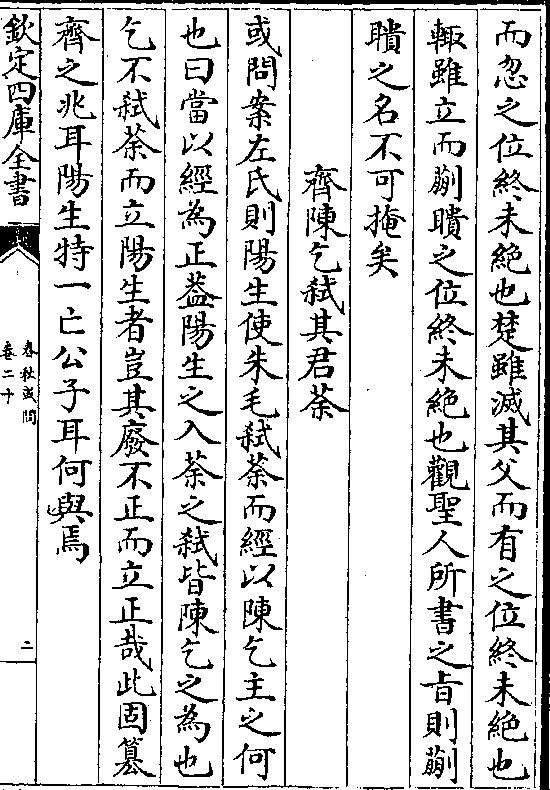 而忽之位終未絶也楚雖滅其父而有之位終未絶也
輙雖立而蒯聵之位終未絶也觀聖人所書之㫖則蒯
聵之名不可掩矣
齊陳乞弑其君荼
或問案左氏則陽生使朱毛弑荼而經以陳乞主之何
也曰當以經為正葢陽生之入荼之弑皆陳乞之為也
乞不弑荼而立陽生者豈其廢不正而立正哉此固簒
齊之兆耳陽生特一亡公子耳何與焉
欽定四庫全書
春秋或問
卷二十
二